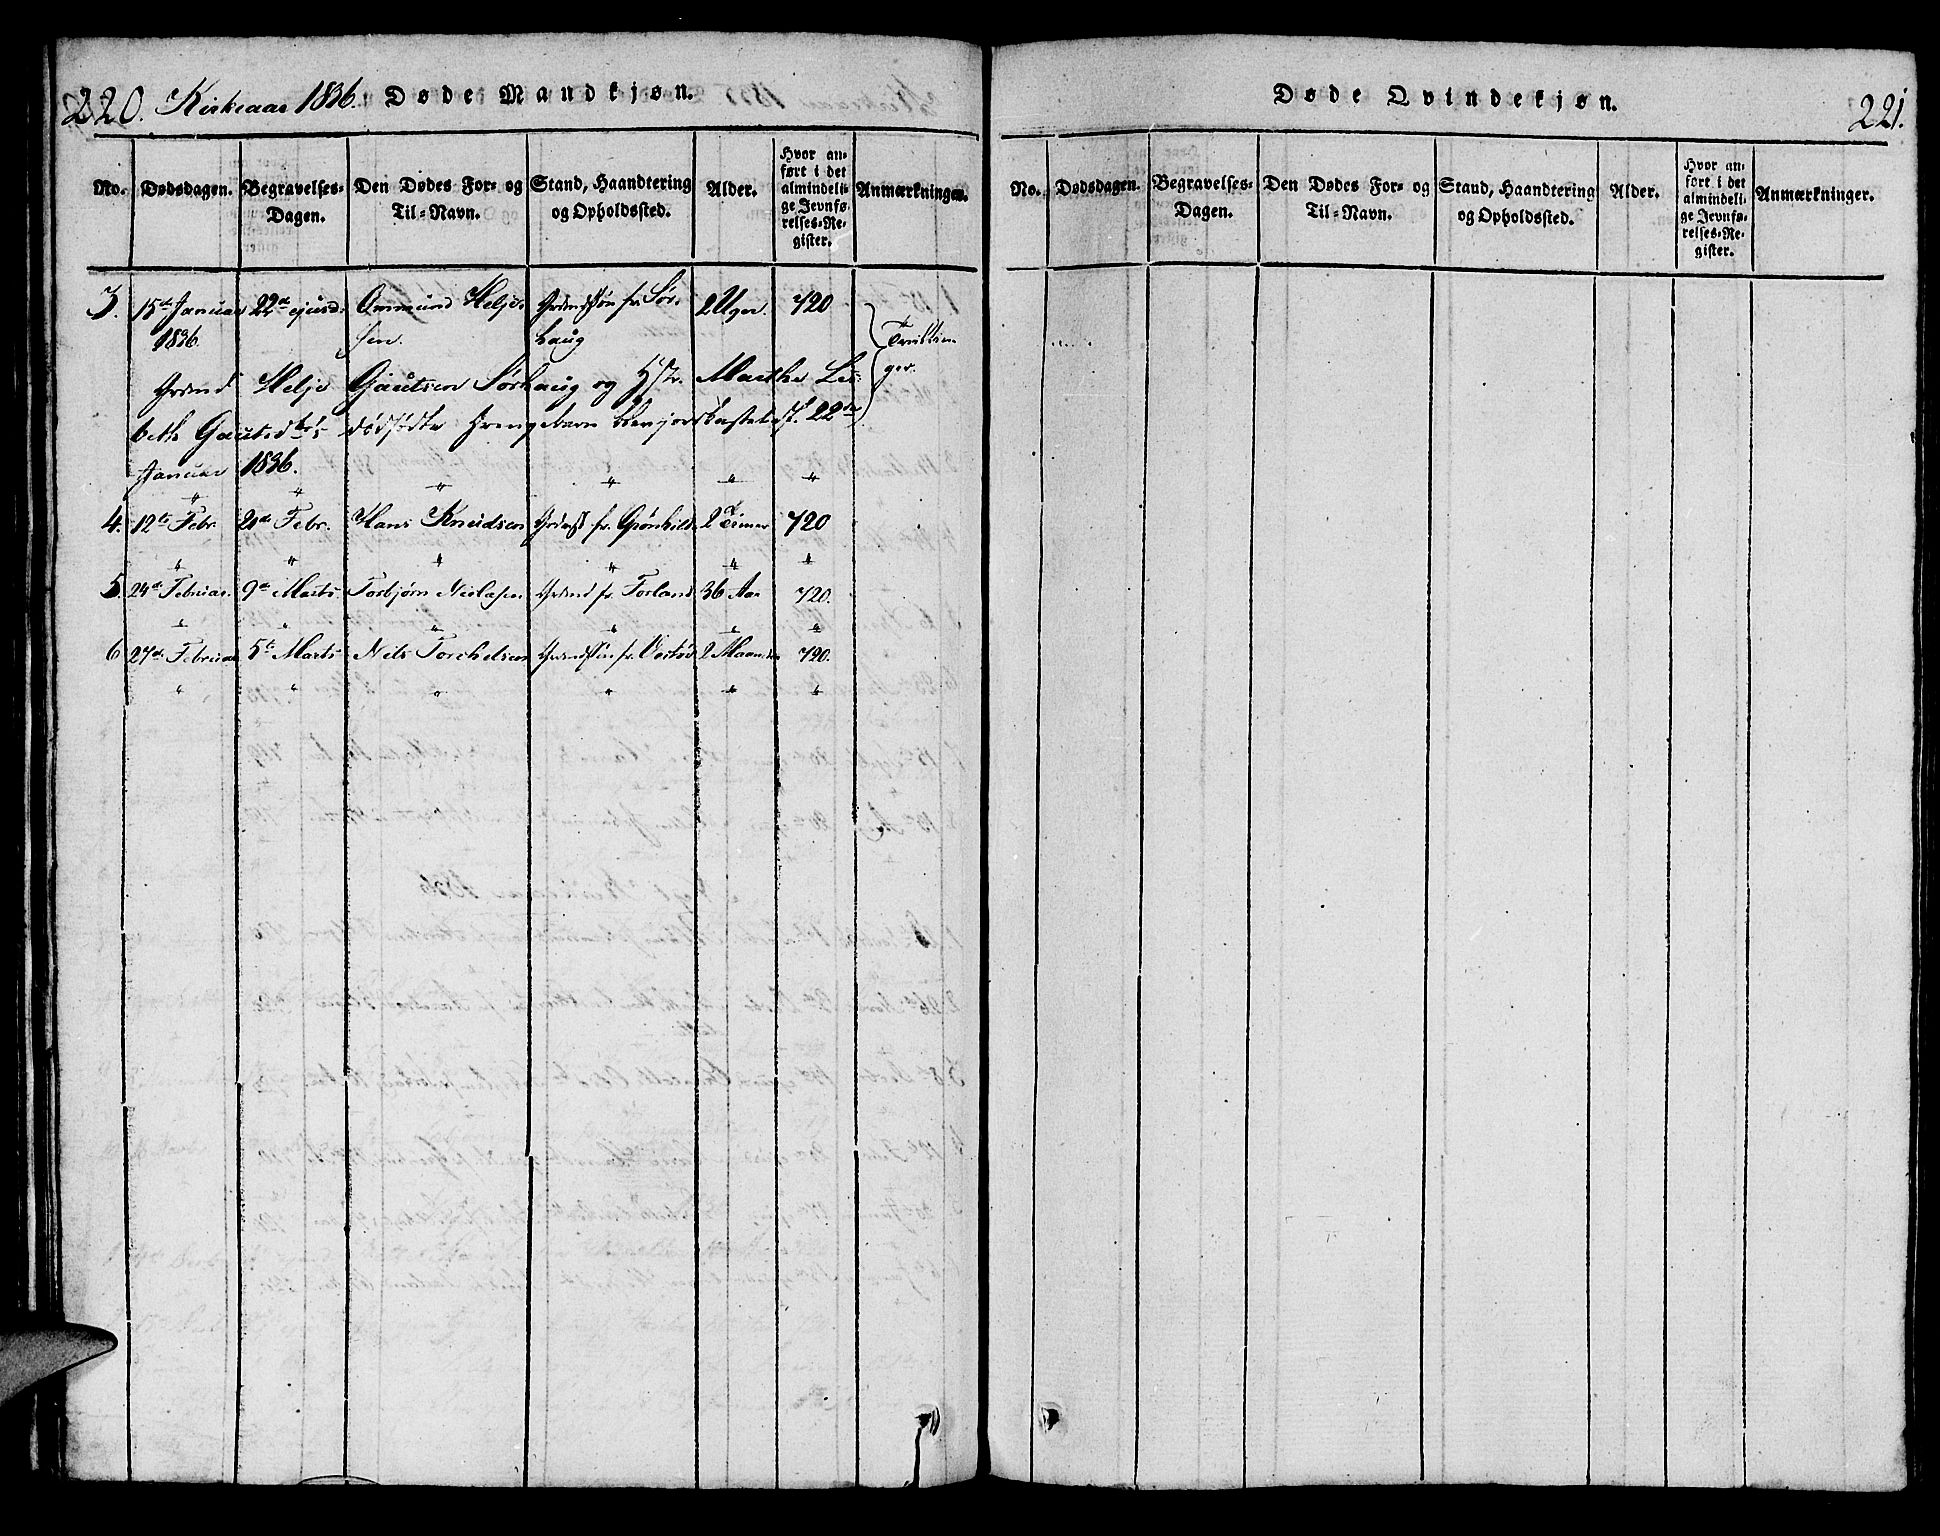 220. Kirkeaar 1836. Døde Mandkjøn.
No. Dødsdagen. Begravelses-Dagen. Den Dødes For- og Til-Navn. Stand, Haandtering og Opholdssted. Alder. Hvor anført i det almindelige Jevnførelses-Register. Anmærkninger.
3. 15de Januar 22de ejusd. Ommund Helje- Gaardssøn fr. Sør- 2 Uger. 720
1836 sen. haug
Gaard Helje Gautsen Sørhaug og Hstr. Marthe Lis-
beth Gautsd. dødfødte Drengebarn blev jordkastet d. 22de
Januar 1836.
Tvillin-
ger.
4. 12te Febr. 21de Febr. Hans Knudsen fr. Grønhild 2 Timer 720
5. 24de Februar. 9de Marts. Torbjørn Nielsen fr. Forland 36 Aar 720.
6 27de Februar 5te Marts Nils Torchelsen Gaardssøn fr. 2 Maaneder 720.
Døde Qvindekjøn. 221.
No. Dødsdagen. Begravelses-Dagen. Den Dødes For- og Til-Navn. Stand, Haandtering og Opholdssted. Alder. Hvor anført i det almindelige Jevnførelses-Register. Anmærkninger.